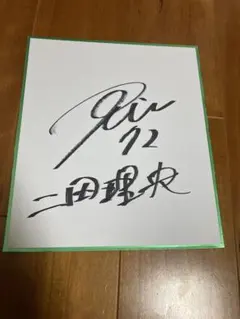 72
二田理央